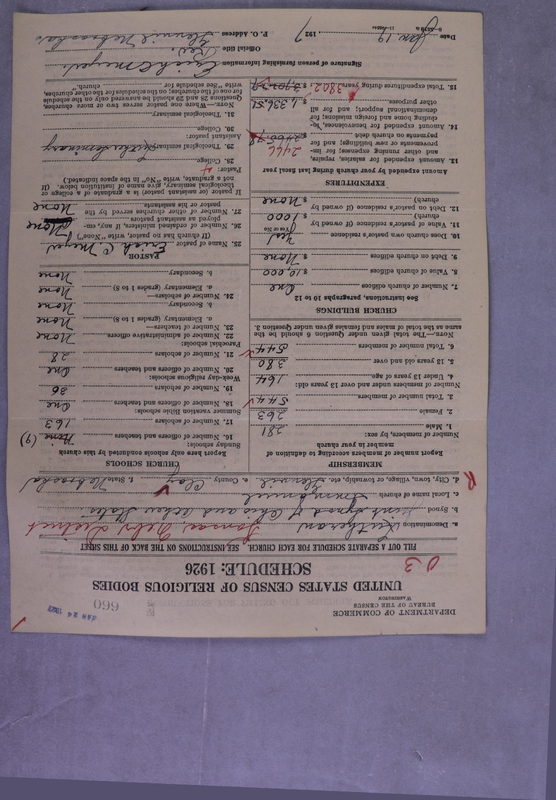 DEPARTMENT OF COMMERCE
BUREAU OF THE CENSUS
WASHINGTON
JAN 24 1927
660
03
UNITED STATES CENSUS OF RELIGIOUS BODIES
SCHEDULE: 1926
FILL OUT A SEPARATE SCHEDULE FOR EACH CHURCH. SEE INSTRUCTIONS ON THE BACK OF THIS SHEET
a. Denomination Lutheran
District
b. Synod Joint Synod of Ohio and other States
c. Local name of church Immanuel
d. City, town, village, or township, etc. Glenvil e. County Clay f. State Nebraska
R
MEMBERSHIP
Report number of members according to definition of member in your church
Number of members, by sex:
1. Male 281
2. Female 263
3. Total number of members 544
Number of members under and over 13 years old:
4. Under 13 years of age 164
5. 13 years old and over 380
6. Total number of members 544
NOTE.—The total given under Question 6 should be the same as the total of males and females given under Question 3.
CHURCH BUILDINGS
See instructions, paragraphs 10 to 12
7. Number of church edifices One
8. Value of church edifices $10,000
9. Debt on church edifices $ None
10. Does church own pastor's residence Yes
(Yes or No)
11. Value of pastor's residence (if owned by church) $
12. Debt on pastor's residence (if owned by church) $ None
EXPENDITURES
Amount expended by your church during last fiscal year
13. Amount expended for salaries, repairs, and other running expenses; for improvements or new buildings; and for payments on church debt $ 2466
14. Amount expended for benevolences, including home and foreign missions; for denominational support; and for all other purposes $ 1,336.51
15. Total expenditures during year $ 3802
CHURCH SCHOOLS
Report here only schools conducted by this church
Sunday schools:
16. Number of officers and teachers (9)
17. Number of scholars 163
Summer vacation Bible schools:
18. Number of officers and teachers One
19. Number of scholars 36
Week-day religious schools:
20. Number of officers and teachers One
21. Number of scholars 28
Parochial schools:
22. Number of administrative officers None
23. Number of teachers—
a. Elementary (grades 1 to 8) None
b. Secondary None
24. Number of scholars—
a. Elementary (grades 1 to 8) None
b. Secondary None
PASTOR
25. Name of pastor Erich C. Meyer
(If church has no pastor, write "None")
26. Number of ordained ministers, if any, employed as assistant pastors None
27. Number of other churches served by the pastor or his assistants None
If pastor (or assistant pastor) is a graduate of a college or theological seminary, give name of institution below. (If not a graduate, write "No" in the space indicated.)
Pastor:
28. College
29. Theological seminary Luther Seminary
Assistant pastor:
30. College
31. Theological seminary
NOTE.—Where one pastor serves two or more churches, Questions 28 and 29 should be answered only on the schedule for one of the churches; on the schedules for the other churches, write "See schedule for church."
Signature of person furnishing information Erich C. Meyer
Official title Rev.
Date Jan. 19, 1927 P. O. Address Glenvil Nebraska